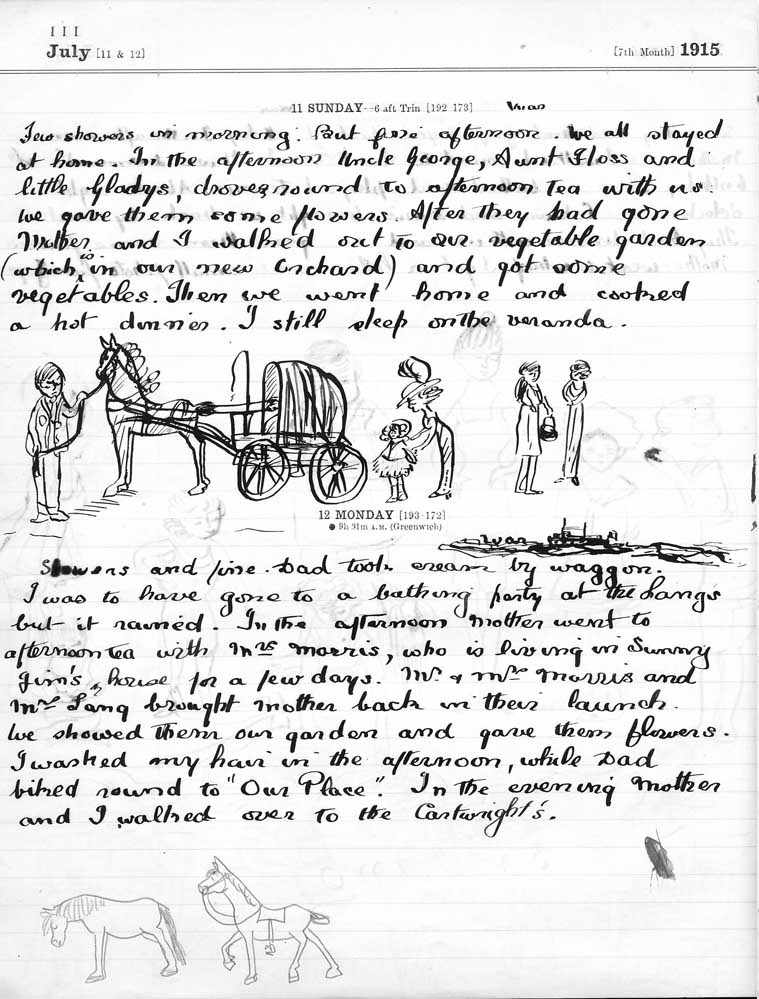 III
July [11 & 12] [7th Month] 1915
11 SUNDAY—6 aft Trin [192-173] War
Few showers in morning. But fine afternoon. We all stayed
at home. In the afternoon Uncle George, Aunt Floss and
little Gladys, drove round to afternoon tea with us.
We gave them some flowers. After they had gone
Mother and I walked out to our vegetable garden
(which is in our new Orchard) and got some
vegetables. Then we went home and cooked
a hot dinner. I still sleep on the veranda.
12 MONDAY [193-172]
● 9h 31m A.M. (Greenwich)
War
Showers and fine. Dad took cream by waggon.
I was to have gone to a bathing party at the Langs
but it rained. In the afternoon Mother went to
afternoon tea with Mrs Morris, who is living in Sunny
Jim's house for a few days. Mr. & Mrs Morris and
Mrs Lang brought Mother back in their launch.
We showed them our garden and gave them flowers.
I washed my hair in the afternoon, while Dad
biked round to "Our Place". In the evening Mother
and I walked over to the Cartwright's.